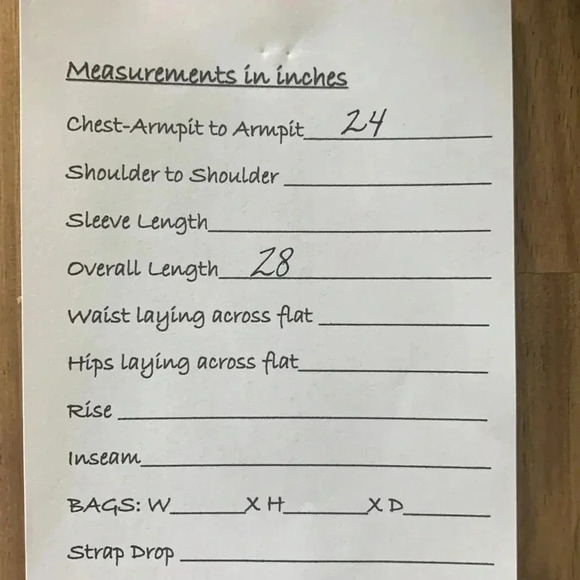 Measurements in inches
Chest-Armpit to Armpit 24
Shoulder to Shoulder
Sleeve Length
Overall Length 28
Waist laying across flat
Hips laying across flat
Rise
Inseam
BAGS: W______X H______X D______
Strap Drop